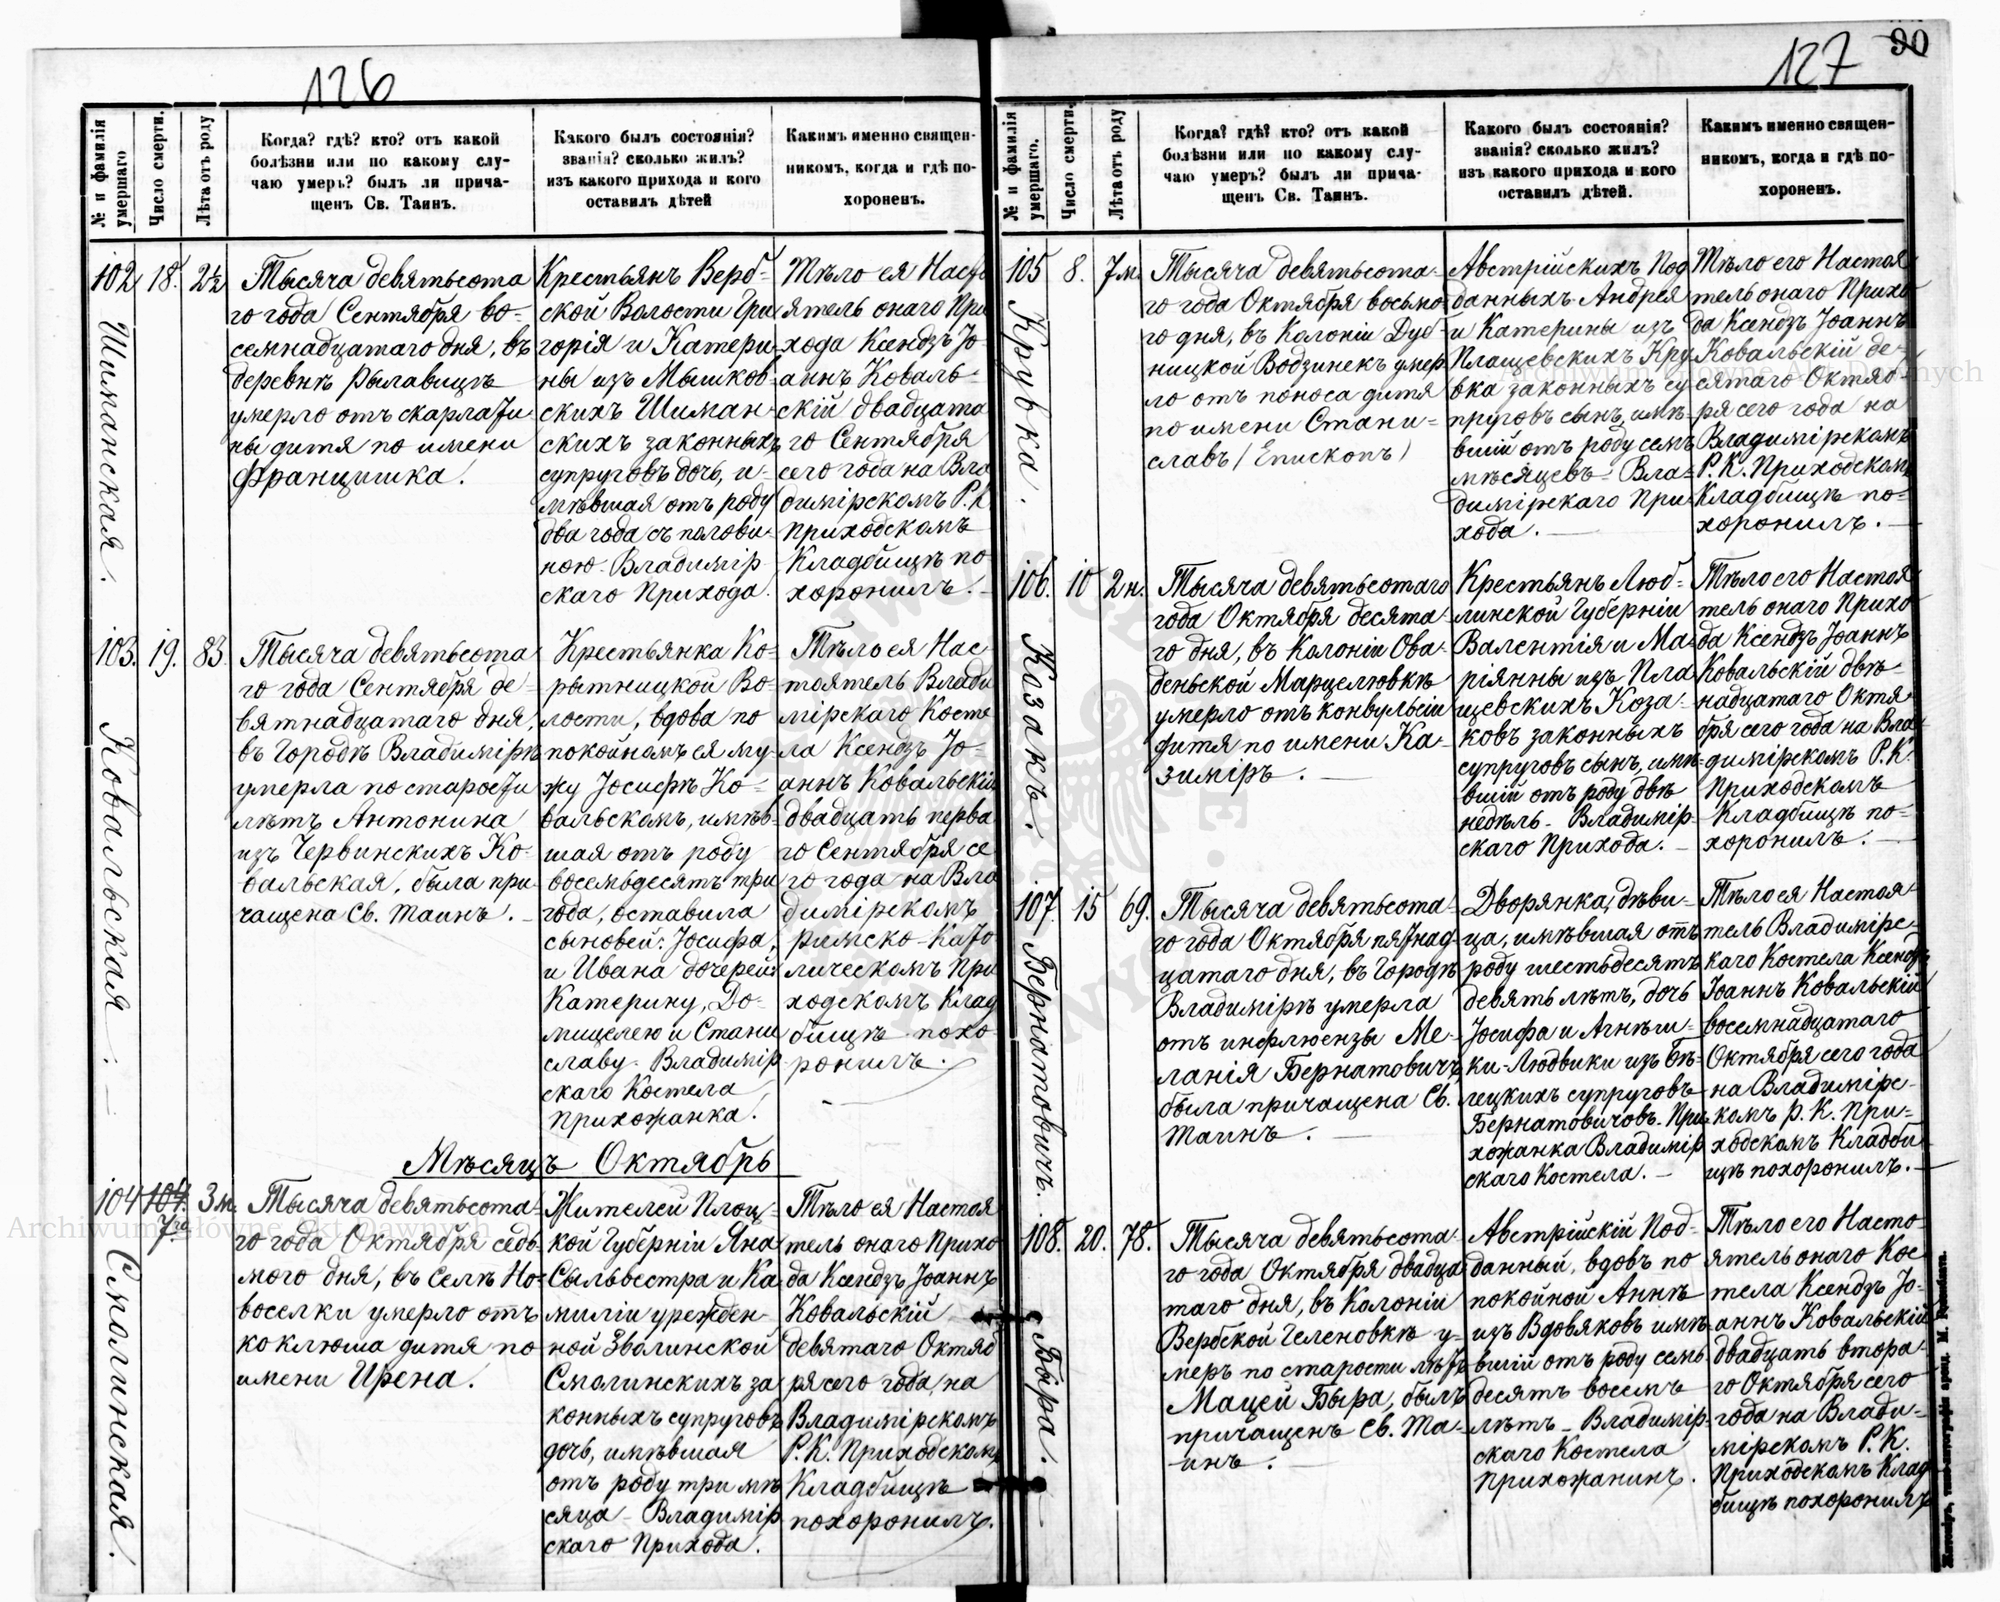 126
№ и фамилія умершаго
Число смерти.
Лѣта отъ роду
Когда? гдѣ? кто? отъ какой
болѣзни или по какому слу-
чаю умеръ? былъ ли прича-
щенъ Св. Таинъ.
Какого былъ состоянія?
званія? сколько жилъ?
изъ какого прихода и кого
оставилъ дѣтей
Какимъ именно священ-
никомъ, когда и гдѣ по-
хороненъ.
102
Шиманская.
18.
2½
Тысяча девятьсота
го года Сентября во-
семнадцатаго дня, въ
деревнѣ Рылавицѣ
умерло отъ скарлати
ны дитя по имени
Францишка.
Крестьянъ Верб-
ской Волости Гри
горія и Катери-
ны изъ Мышков-
скихъ Шиман-
скихъ законныхъ
супруговъ дочь, и-
мѣвшая отъ роду
два года съ полови-
ною. Владимір-
скаго Прихода.
Тѣло ея Насто
ятель онаго При
хода Ксендзъ Іо-
аннъ Коваль-
скій двадцата
го Сентября
сего года на Вла
димірскомъ Р. К.
Приходскомъ
Кладбищѣ по-
хоронилъ.
103.
Ковальская.
19.
83.
Тысяча девятьсота
го года Сентября де-
вятнадцатаго дня,
въ Городѣ Владимірѣ
умерла по старости
лѣтъ Антонина
изъ Червинскихъ Ко-
вальская, была при-
чащена Св. Таинъ.
Крестьянка Ко-
рытницкой Во-
лости, вдова по
покойномъ ея му-
жу Іосифѣ Ко-
вальскомъ, имѣв-
шая отъ роду
восемьдесятъ три
года, оставила
сыновей: Іосифа,
и Ивана дочерей:
Катерину, До-
мицелею и Стани
славу. Владимір-
скаго Костела
Прихожанка.
Тѣло ея Нас-
тоятель Влади
мірскаго Косте
ла Ксендзъ Іо-
аннъ Ковальскій
двадцать перва
го Сентября се-
го года на Вла
димірскомъ
Римско-Като
лическомъ При
ходскомъ Клад
бищѣ похо-
ронилъ.
Мѣсяцъ Октябрь
104
Смолинская.
104.
7го
3 м.
Тысяча девятьсота-
го года Октября седь
мого дня, въ Селѣ Но-
воселки умерло отъ
коклюша дитя по
имени Ирена.
Жителей Плоц-
кой Губерніи Яна
Сыльвестра и Ка
миліи урежден-
ной Зволинской
Смолинскихъ за
конныхъ супруговъ
дочь, имѣвшая
отъ роду три мѣ
сяца - Владимір
скаго Прихода.
Тѣло ея Настоя
тель онаго Прихо
да Ксендзъ Іоаннъ
Ковальскій
девятаго Октяб
ря сего года на
Владимірскомъ
Р. К. Приходскомъ
Кладбищѣ
похоронилъ.
127
90
№ и фамилія умершаго.
Число смерти.
Лѣта отъ роду
Когда? гдѣ? кто? отъ какой
болѣзни или по какому слу-
чаю умеръ? былъ ли прича-
щенъ Св. Таинъ.
Какого былъ состоянія?
званія? сколько жилъ?
изъ какого прихода и кого
оставилъ дѣтей.
Какимъ именно священ-
никомъ, когда и гдѣ по-
хороненъ.
105
Крувка.
8.
7 м.
Тысяча девятьсота-
го года Октября восьмо-
го дня, въ Колоніи Дуб-
ницкой Водзинекъ умер
ло отъ поноса дитя
по имени Стани-
славъ (Епископъ)
Австрійскихъ Под
данныхъ Андрея
и Катерины изъ
Плащевскихъ Кру
вка законныхъ су
пруговъ сынъ, имѣ-
вшій отъ роду семь
мѣсяцевъ - Вла-
димірскаго При-
хода.
Тѣло его Настоя
тель онаго Прихо
да Ксендзъ Іоаннъ
Ковальскій де-
сятаго Октяб-
ря сего года на
Владимірскомъ
Р. К. Приходскомъ
Кладбищѣ по-
хоронилъ.
106.
Козакъ.
10
2 н.
Тысяча девятьсотаго
года Октября десята-
го дня, въ Колоніи Ова-
деньской Марцелювкѣ
умерло отъ конвульсіи
дитя по имени Ка-
зиміръ.
Крестьянъ Люб-
линской Губерніи
Валентія и Ма-
ріянны изъ Пла
щевскихъ Коза-
ковъ законныхъ
супруговъ сынъ, имѣ-
вшій отъ роду двѣ
недѣль - Владимір-
скаго Прихода.
Тѣло его Настоя
тель онаго Прихо
да Ксендзъ Іоаннъ
Ковальскій двѣ-
надцатаго Октя
бря сего года на Вла
димірскомъ Р. К.
Приходскомъ
Кладбищѣ по-
хоронилъ.
107.
Бернатовичъ.
15
69.
Тысяча девятьсота-
го года Октября пятнад-
цатаго дня, въ Городѣ
Владимірѣ умерла
отъ инфлюензы Ме-
ланія Бернатовичъ
была причащена Св.
Таинъ.
Дворянка, дѣви-
ца, имѣвшая отъ
роду шестьдесятъ
девять лѣтъ, дочь
Іосифа и Агнѣш-
ки-Людвики изъ Бѣ-
лецкихъ супруговъ
Бернатовичовъ. При
хожанка Владимір
скаго Костела.
Тѣло ея Настоя-
тель Владимірс-
каго Костела Ксендзъ
Іоаннъ Ковальскій
восемнадцатаго
Октября сего года
на Владимірс-
комъ Р. К. При-
ходскомъ Кладби
щѣ похоронилъ.
108.
Быра.
20.
78.
Тысяча девятьсота-
го года Октября двадца-
таго дня, въ Колоніи
Вербской Геленовкѣ у-
меръ по старости лѣтъ
Мацей Быра, былъ
причащенъ Св. Та-
инъ.
Австрійскій Под-
данный, вдовъ по
покойной Аннѣ
изъ Вдовяковъ имѣ-
вшій отъ роду семь
десятъ восемъ
лѣтъ - Владимір-
скаго Костела
Прихожанинъ.
Тѣло его Насто-
ятель онаго Кос-
тела Ксендзъ Іо-
аннъ Ковальскій
двадцать втора-
го Октября сего
года на Влади-
мірскомъ Р. К.
Приходскомъ Клад
бищѣ похоронилъ
Archiwum Główne Akt Dawnych
Archiwum Główne Akt Dawnych